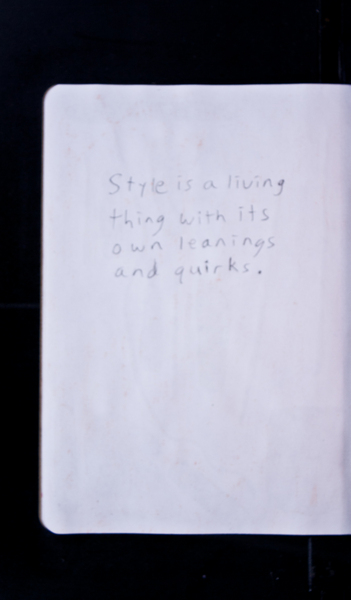 Style is a living
thing with its
own leanings
and quirks.